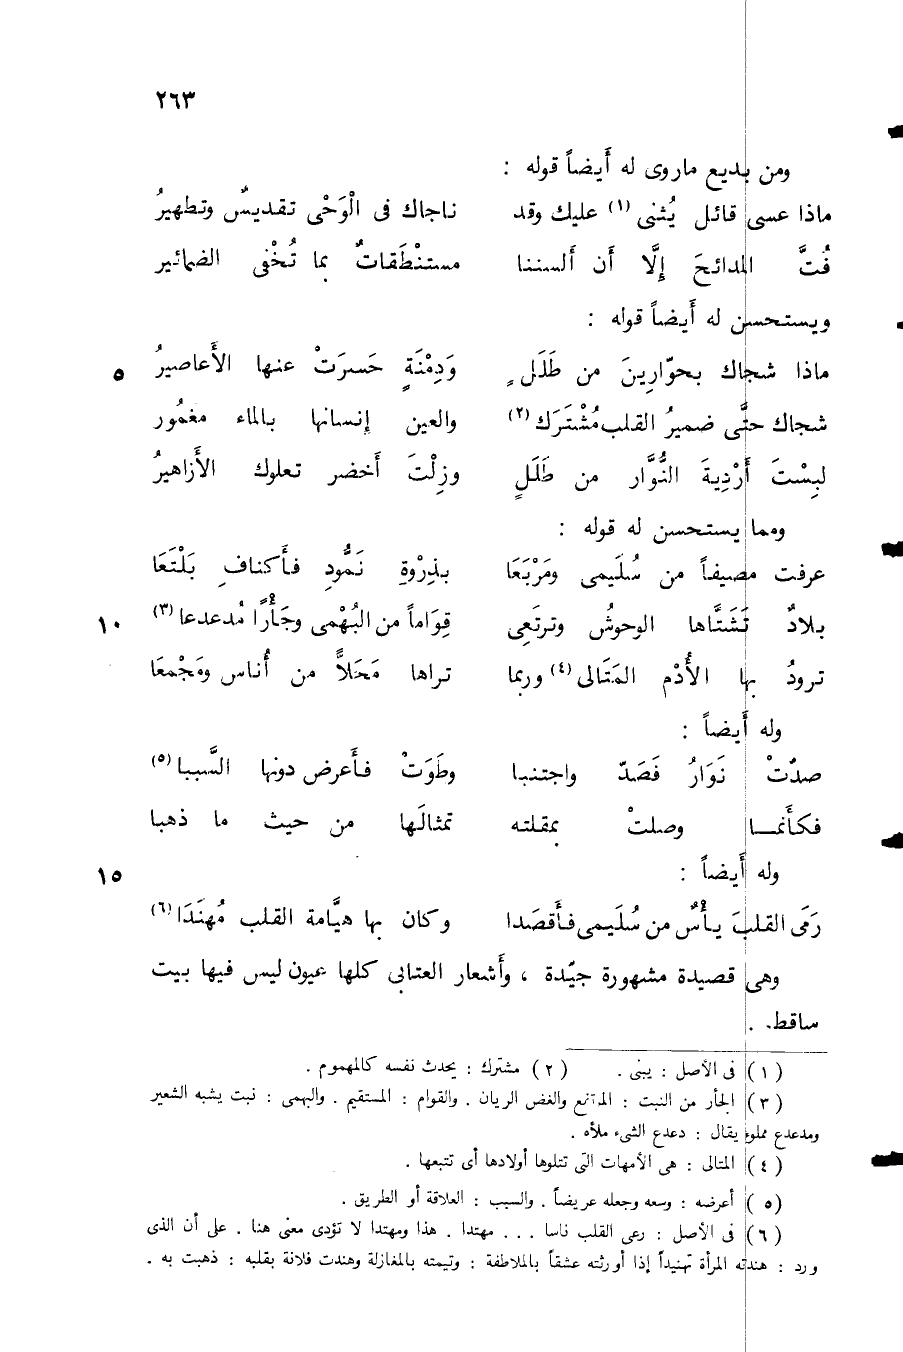 ٢٦٣
ومن بديع ماروى له أَيضاً قوله :
ماذا عسى قائل يُثنى (١) عليك وقد ناجاك فى الْوَحْى تقديسٌ وتطهيرُ
فُتَّ المدائحَ إلَّا أن ألسننا مستنْطَقاتٌ بما تُخْفى الضمائير
ويستحسن له أَيضاً قوله :
ماذا شجاك بحوّارينَ من طَلَلٍ وَدِمْنَةٍ حَسرَتْ عنها الأَعاصيرُ ٥
شجاك حتَّى ضميرُ القلب مُشْتَرَك (٢) والعين إنسانها بالماء مغمُور
لبِسْتَ أَرْدِيةَ النُّوَّار من طَلَلٍ وزِلْتَ أَخضر تعلوك الأَزاهيرُ
ومما يستحسن له قوله :
عرفت مصيفاً من سُلَيمى ومَرْبَعَا بذِرْوةِ نَمُّودِ فأَكنافِ بَلْتَعَا
بلادٌ تَشَتَّاها الوحوشُ وترتَعِى قِوَاماً من البُهْمى وجَأْرًا مُدعدعا (٣) ١٠
ترودُ بها الأُدْم المَتَالى (٤) وربما تراها مَحَلاًّ من أُناس ومَجْمعَا
وله أَيضاً :
صدّتْ نَوَارُ فَصَدّ واجتنبا وطَوَتْ فأَعرض دونها السَّببا (٥)
فكأَنمـا وصلتْ بمقلته تمثالَها من حيث ما ذهبا
وله أَيضاً : ١٥
رَمَى القلبَ يأْسٌ من سُليمى فأَقصدا وكان بها هيَّامة القلب مُهنَدَا (٦)
وهى قصيدة مشهورة جيّدة ، وأَشعار العتابى كلها عيون ليس فيها بيت
ساقط .
(١) فى الأصل : يبنى . (٢) مشترك : يحدث نفسه كالمهموم .
(٣) الجأر من النبت : المرتفع والغض الريان . والقوام : المستقيم . والبهمى : نبت يشبه الشعير
ومدعدع مملوء يقال : دعدع الشىء ملأه .
(٤) المتالى : هى الأمهات التى تتلوها أولادها أى تتبعها .
(٥) أعرضه : وسعه وجعله عريضاً . والسبب : العلاقة أو الطريق .
(٦) فى الأصل : رعى القلب ناسا . . . مهتدا . هذا ومهتدا لا تؤدى معنى هنا . على أن الذى
ورد : هندته المرأة تهنيداً إذا أورثته عشقاً بالملاطفة : وتيمته بالمغازلة وهندت فلانة بقلبه : ذهبت به .